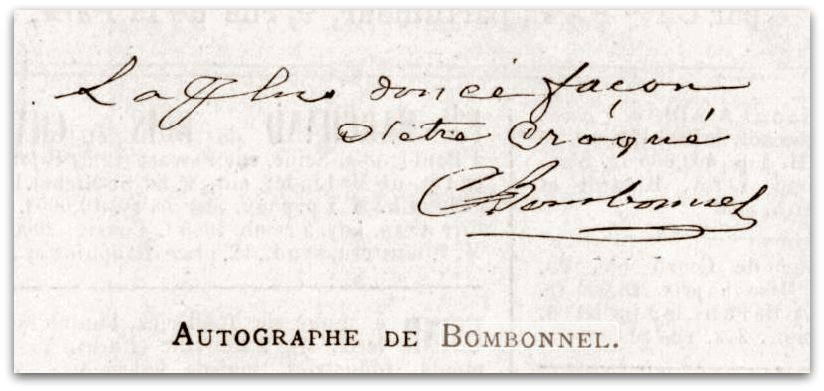 La plus doucé façon
d'être croqué
CBombonnel
AUTOGRAPHE DE BOMBONNEL.